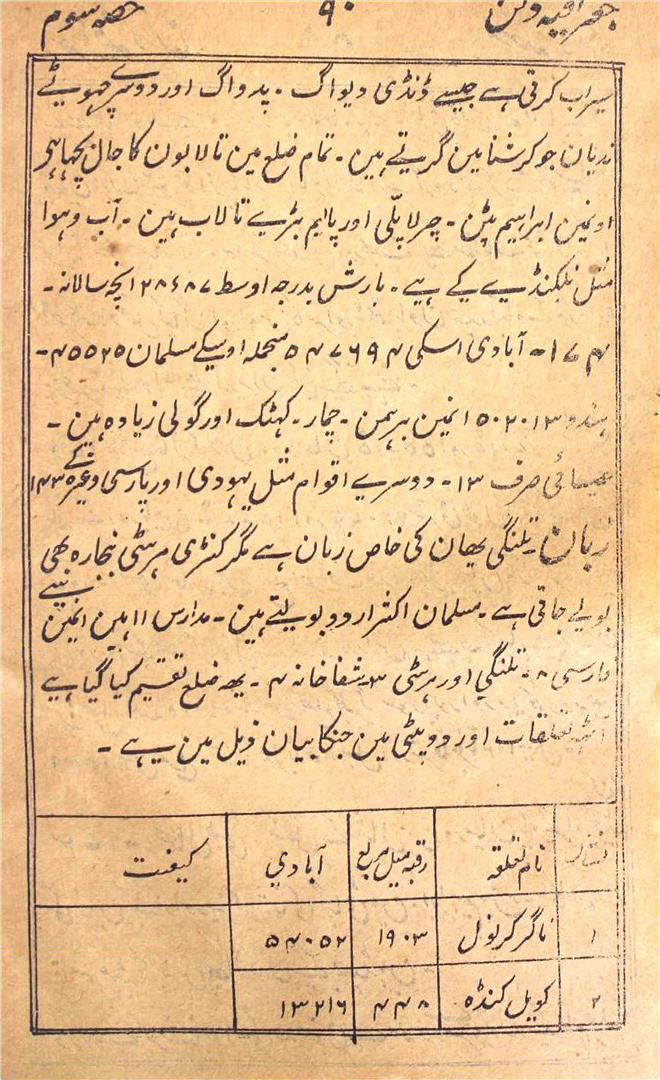 جغرافیہ دکن ۹۰ حصہ سوم
سیراب کرتی ہے جیسے ڈنڈی دیواگ ۔ پدواگ اور دوسرے چہوٹے
ندیان جو کرشنا مین گرتے ہین ۔ تمام ضلع مین تالابون کا جال بچہا ہی
اونمین ابراہیم پٹن ۔ چرلاپلّی اور پانیم بڑے تالاب ہین ۔ آب وہوا
مثل نلکنڈے کے ہے ۔ بارش بدرجہ اوسط ۲۸٫۸۷ انچہ سالانہ ۔
آبادی اسکی ۵۴۷۶۹۴ منجملہ اوسکے مسلمان ۴۵۵۲۵ ۔
ہندو ۵۰۲۰۱۳ انمین برہمن ۔ چمار ۔ کہٹک اور گولی زیادہ ہین ۔
عیسائی صرف ۱۳ ۔ دوسرے اقوام مثل یہودی اور پارسی وغیرہ کے
زبان تلنگی یہان کی خاص زبان ہے مگر کنڑی مرہٹی بنجارہ بھی
بولے جاتی ہے ۔ مسلمان اکثر اردو بولتے ہین ۔ مدارس ۱۱ ہین انمین سے
فارسی ۸ ۔ تلنگی اور مرہٹی ۳ ۔ شفاخانہ ۴ ۔ یہ ضلع تقسیم کیا گیا ہے
آٹہ تعلقات اور دو پٹی مین جنکا بیان ذیل مین ہے ۔
نام تعلقہ رقبہ میل مربع آبادي کیفیت
۱ ناگر کرنول ۱۹۰۳ ۵۴۰۵۲
۲ کویل کنڈہ ۴۴۸ ۱۳۲۱۶